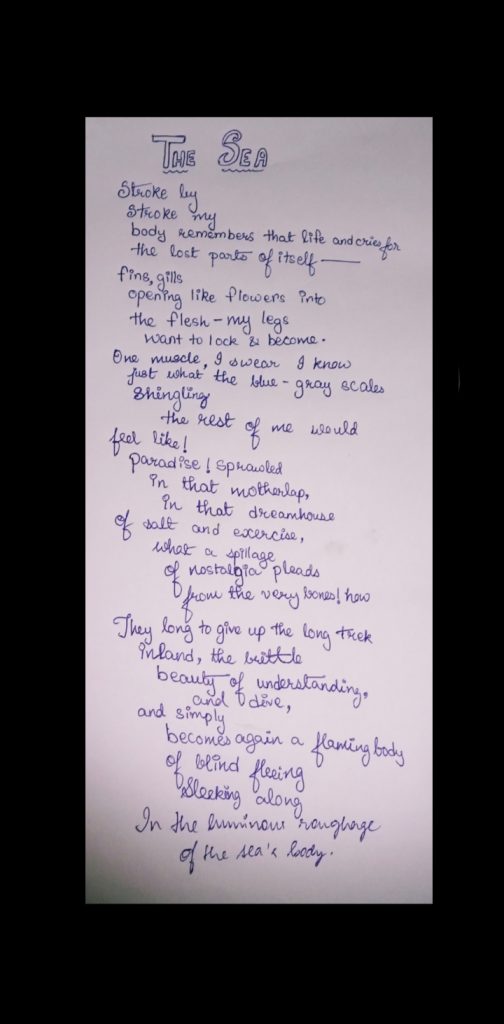 THE SEA
Stroke by
Stroke my
body remembers that life and cries for
the lost parts of itself —
fins, gills
opening like flowers into
the flesh - my legs
want to lock & become.
One muscle, I swear I know
just what the blue - gray scales
Shingling
the rest of me would
feel like!
paradise! Sprawled
in that motherlap,
in that dreamhouse
of salt and exercise,
what a spillage
of nostalgia pleads
from the very bones! how
They long to give up the long trek
inland, the brittle
beauty of understanding,
and dive,
and simply
becomes again a flaming body
of blind fleeing
Sleeking along
In the luminous roughage
of the sea's body.